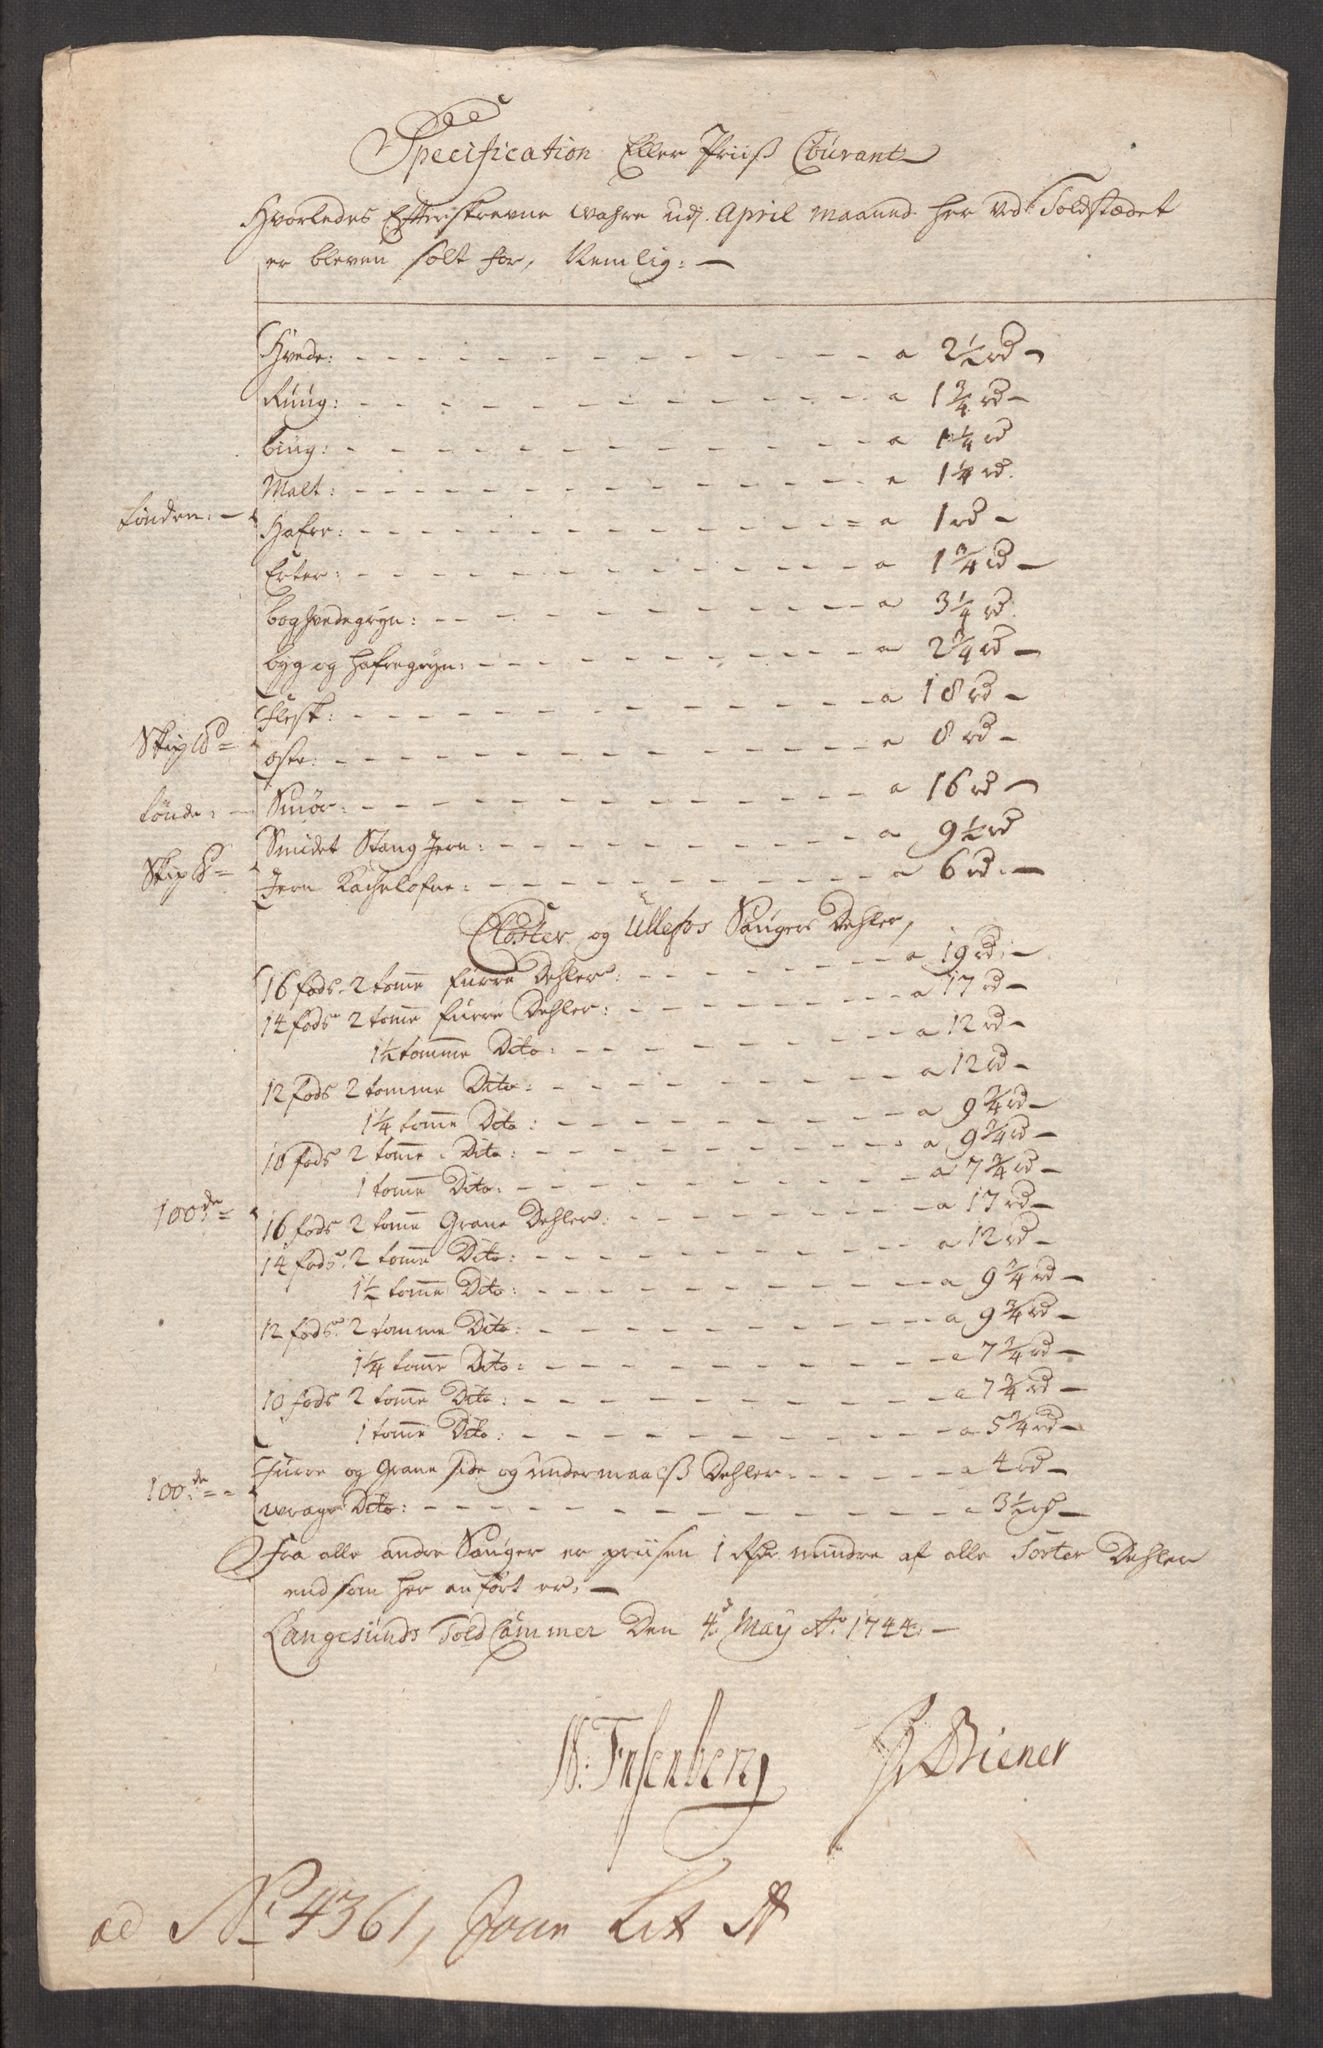 Specification Eller Priiß Courant
Hvorledes Efterskrevne wahre udj. April Maaned her ved Toldstædet
er bleven solt for, Nemlig:
Hvede: a 2½ rd
Ruug: a 1¾ rd
biug: a 1¼ rd
Malt: a 1¼ rd
tønden: Hafre: a 1 rd
Erter: a 1¾ rd
boghvedegryn: a 3¼ rd
byg og hafregryn: a 2¾ rd
Flesk: a 18 rd
Skip℔d= oste: a 8 rd
tønde: Smør: a 16 rd
Smidet Stang Jern: a 9½ rd
Skip℔= Jern Kachelofne: a 6 rd
Closter og Ullefos Sauger Dehler,
16 fods 2 tom̄e furre Dehler: a 19 rd
14 fods 2 tom̄e furre Dehler: a 17 rd
1½ tomme Dito: a 12 rd
12 fods 2 tomme Dito: a 12 rd
1¼ tom̄e Dito: a 9¾ rd
10 fods 2 tom̄e Dito: a 9¾ rd
1 tom̄e Dito: a 7¾ rd
100de= 16 fods 2 tom̄e Grane Dehler: a 17 rd
14 fods 2 tom̄e Dito: a 12 rd
1½ tom̄e Dito: a 9¾ rd
12 fods 2 tomme Dito: a 9¾ rd
1¼ tom̄e Dito: a 7¾ rd
10 fods 2 tom̄e Dito: a 7¾ rd
1 tom̄e Dito: a 5¾ rd
Furre og Grane side og undermaalß Dehler a 4 rd
100de= wrage Dito: a 3½ rd
Fra alle andre Sauger er priisen 1 Rdr mindre af alle Sorter Dehler
end som her anført er.
Langesunds Told Cammer Den 4d May Ao 1744
J. Biener
ad No 4361, Jour Lit A